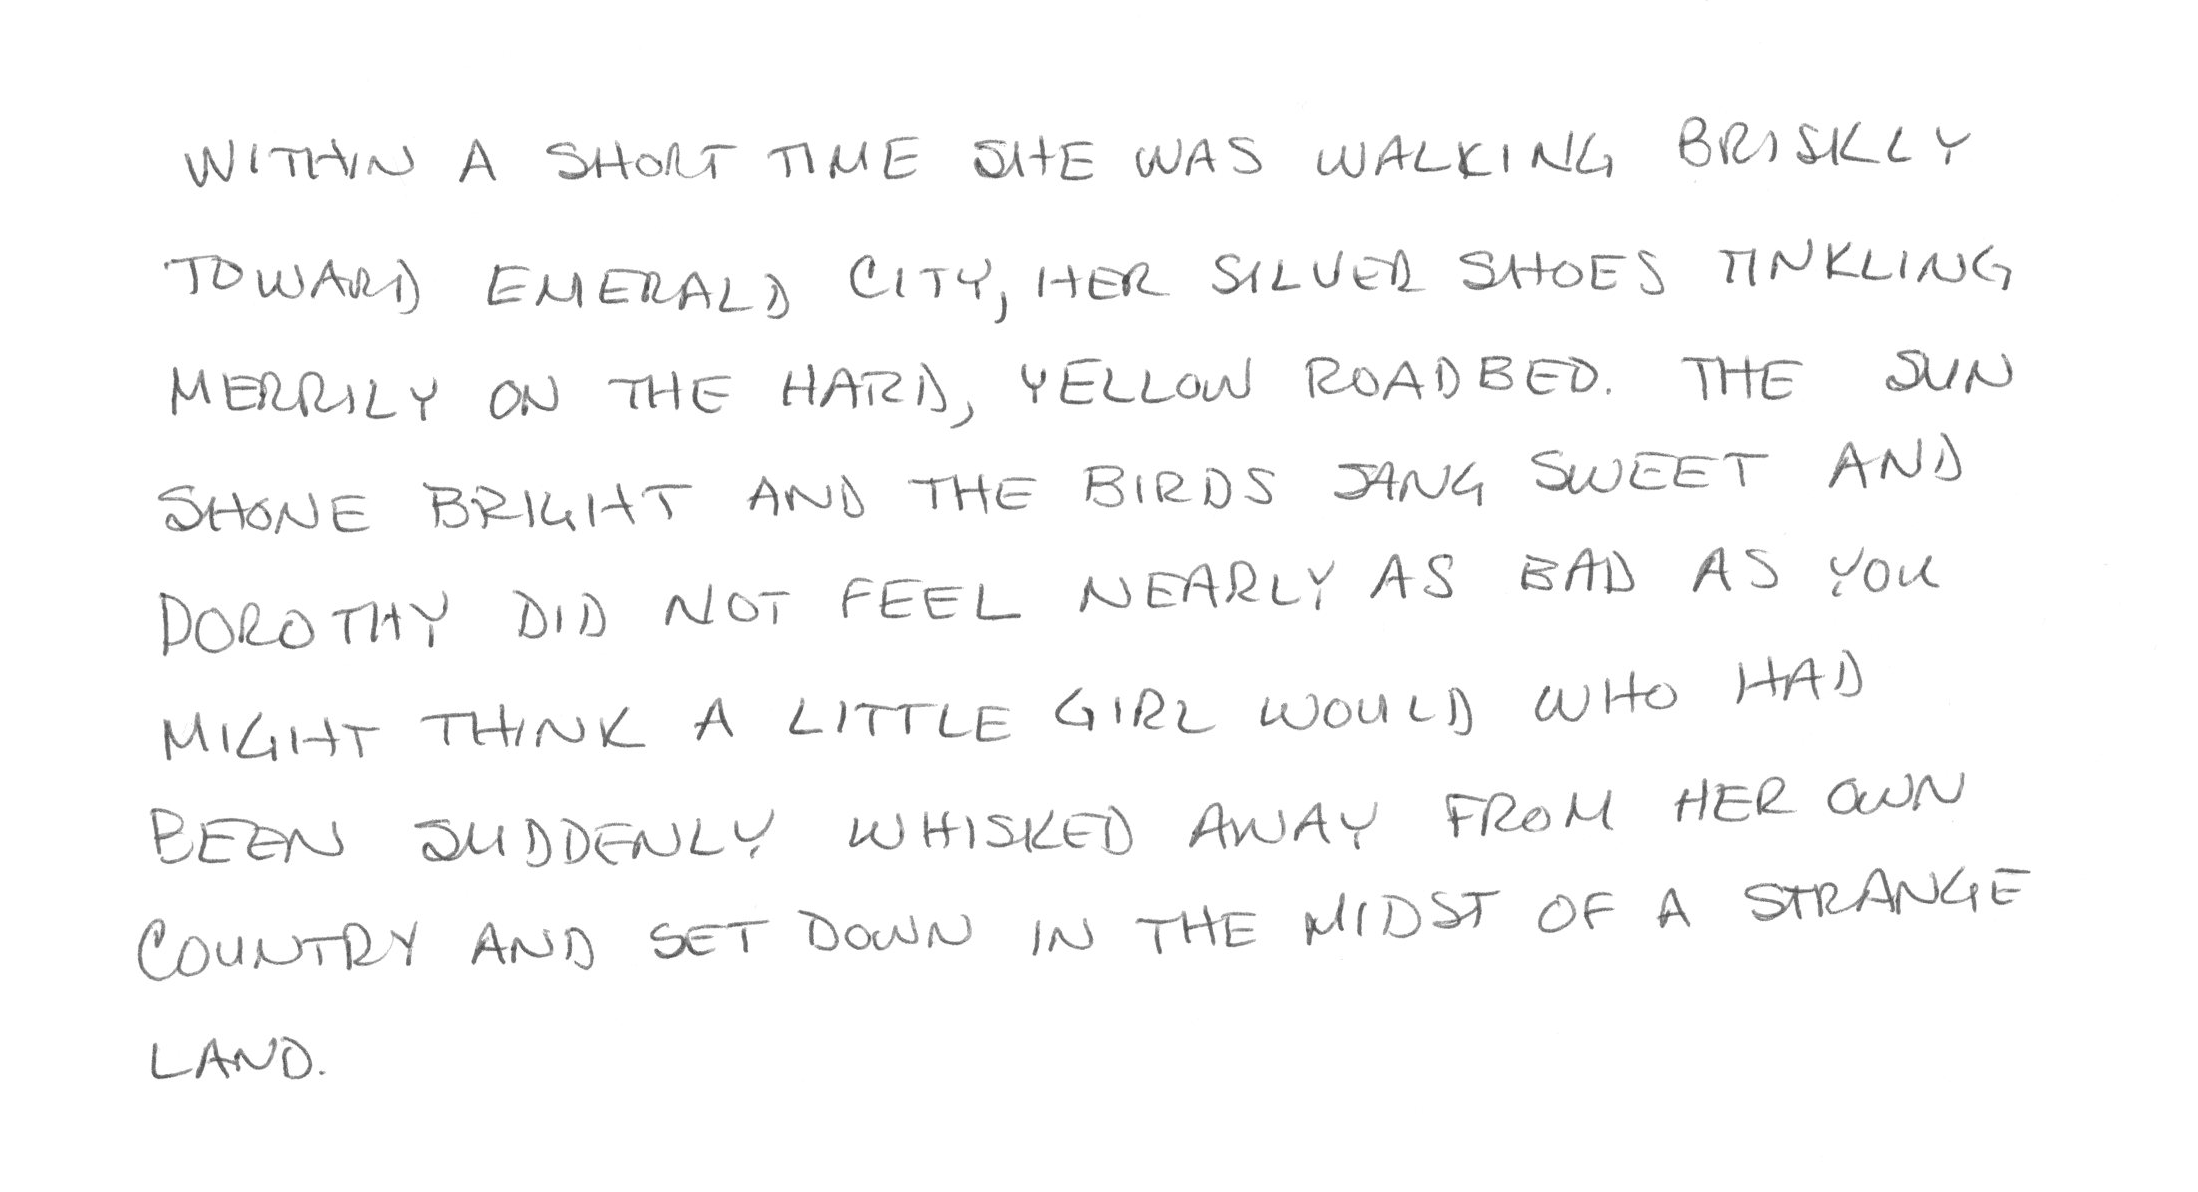 WITHIN A SHORT TIME SHE WAS WALKING BRISKLY
TOWARD EMERALD CITY, HER SILVER SHOES TINKLING
MERRILY ON THE HARD, YELLOW ROADBED. THE SUN
SHONE BRIGHT AND THE BIRDS SANG SWEET AND
DOROTHY DID NOT FEEL NEARLY AS BAD AS YOU
MIGHT THINK A LITTLE GIRL WOULD WHO HAD
BEEN SUDDENLY WHISKED AWAY FROM HER OWN
COUNTRY AND SET DOWN IN THE MIDST OF A STRANGE
LAND.